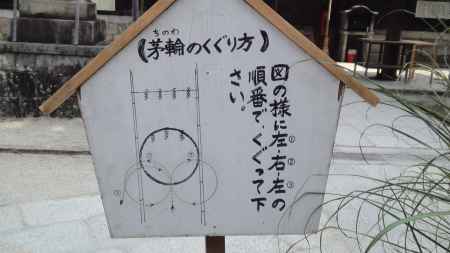 《茅輪のくぐり方》
ちのわ
図の様に左・右・左の
① ② ③
順番で、くぐって下
さい。